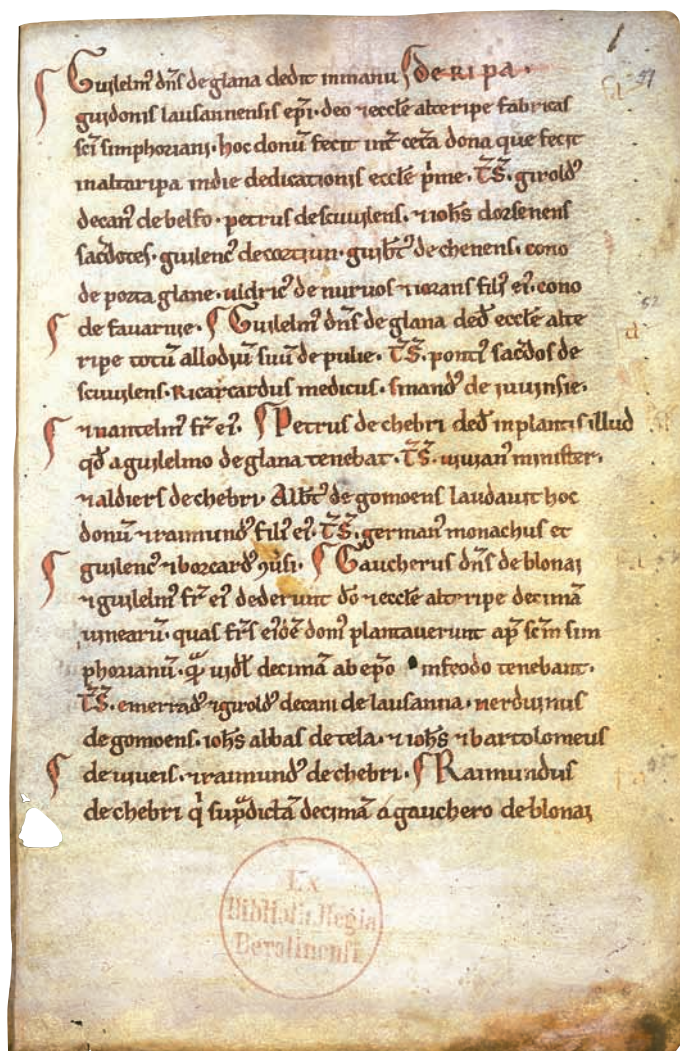 Guilelm᷒ dn̄s de glana dedit in manu ⸿ de Ripa.
guidonis lausannensis ep̄i. deo ⁊ eccl̄e alteripe fabricas
sc̄i simphoriani. hoc donū fecit int̄ cet̄a dona que fecit
in altaripa in die dedicationis eccl̄e p̄me. T̄S̄. girold᷒
decan᷒ de belfo. petrus de scuvilens. ⁊ ioh̄s dorsenens
sac̄dotes. guilenc᷒ de cortiun. guib̄t᷒ de chenens. cono
de porta glane. uldric᷒ de nuruos ⁊ iorans fili᷒ ei᷒. cono
de favarnie. ⸿ Guilelm᷒ dn̄s de glana ded̄ eccl̄e alte
ripe totū allodiū suū de pulie. T̄S̄. ponti᷒ sac̄dos de
scuvilens. Ricarcardus medicus. smand᷒ de iuuinsie.
⁊ nantelm᷒ fr̄ ei᷒. ⸿ Petrus de chebri ded̄ in plantis illud
qd̄ a guilelmo de glana tenebat. T̄S̄. uiuian᷒ minister.
⁊ aldiers de chebri. Alb̄t᷒ de gomoens laudavit hoc
donū ⁊ raimund᷒ fili᷒ ei᷒. T̄S̄. german᷒ monachus et
guilenc᷒ ⁊ borcard᷒ ꝯūsi. ⸿ Gaucherus dn̄s de blonai
⁊ guilelm᷒ fr̄ ei᷒ dederunt dō ⁊ eccl̄e alteripe decimā
uinearū. quas fr̄s ei᷒dē dom᷒ plantaverunt ap̄ sc̄m sim
phorianū. uidl̄ decimā ab ep̄o in feodo tenebant.
T̄S̄. emerrad᷒ ⁊ girold᷒ decani de lausanna. nerduinus
de gomoens. ioh̄s abbas de tela. ⁊ ioh̄s ⁊ bartolomeus
de uiueis. ⁊ raimund᷒ de chebri. ⸿ Raimundus
de chebri q̇ sup̄dictā decimā a gauchero de blonai
Ex
Biblioth. Regia
Berolinensi